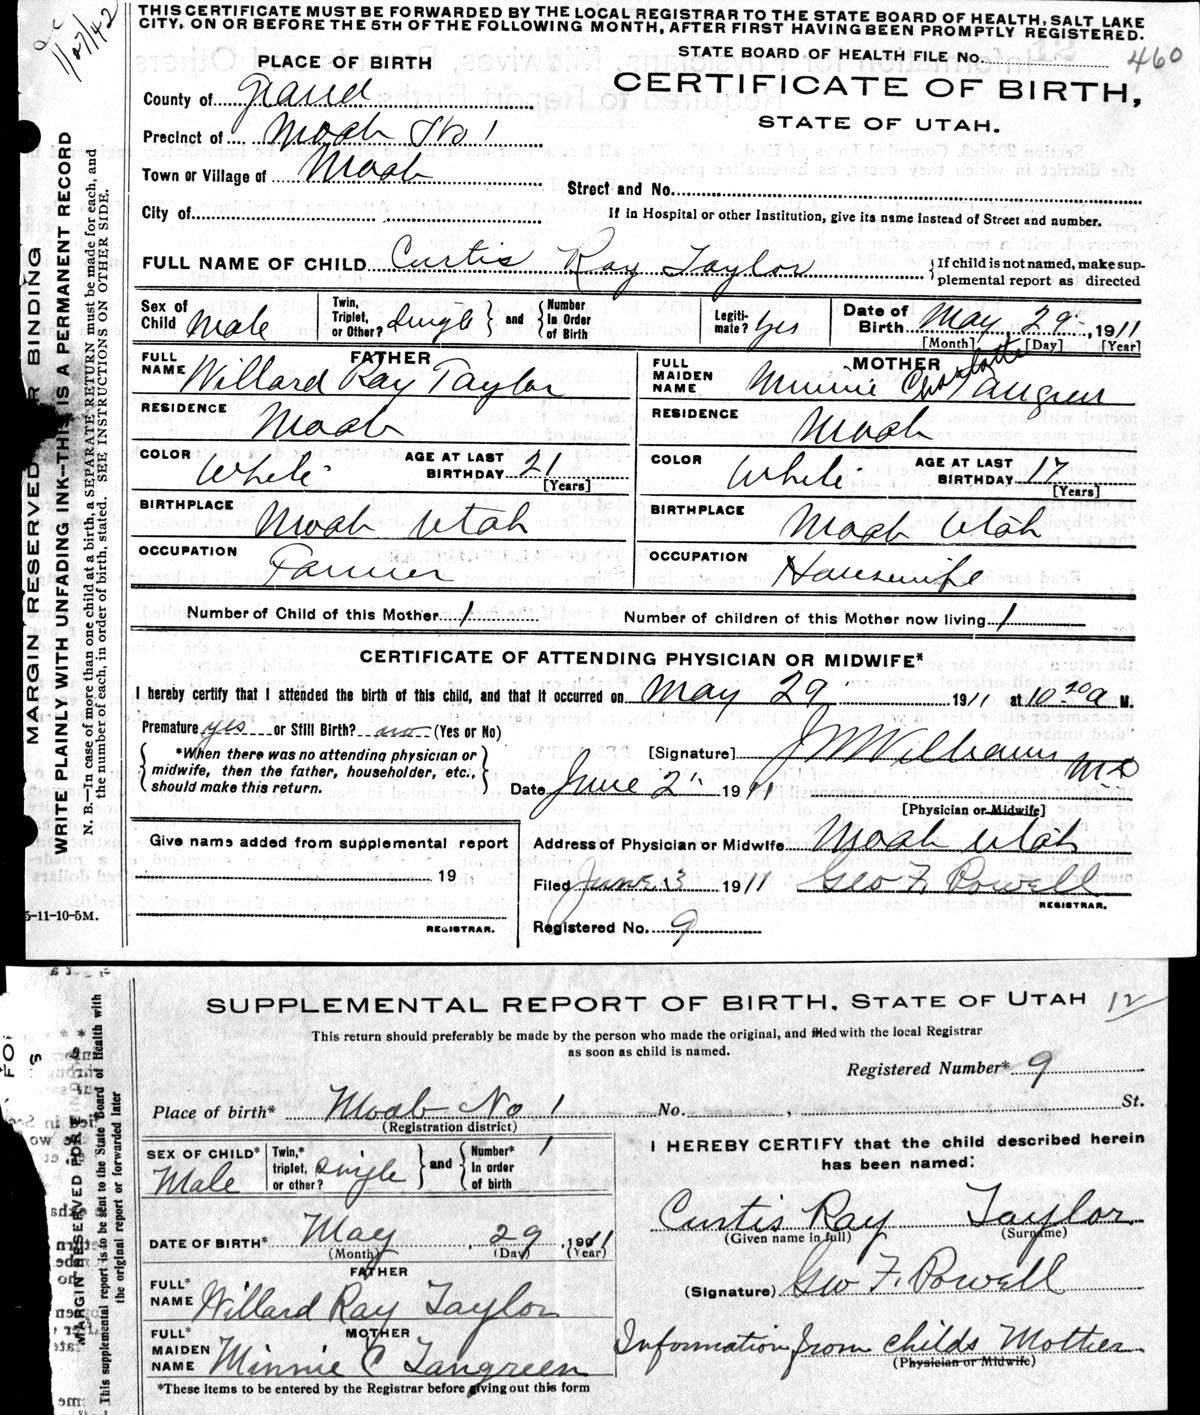 THIS CERTIFICATE MUST BE FORWARDED BY THE LOCAL REGISTRAR TO THE STATE BOARD OF HEALTH, SALT LAKE
CITY, ON OR BEFORE THE 5TH OF THE FOLLOWING MONTH, AFTER FIRST HAVING BEEN PROMPTLY REGISTERED.
STATE BOARD OF HEALTH FILE No. 460
PLACE OF BIRTH
CERTIFICATE OF BIRTH,
STATE OF UTAH.
County of Grand
Precinct of Moab No 1
Town or Village of Moab
Street and No.
City of
If in Hospital or other Institution, give its name instead of Street and number.
FULL NAME OF CHILD Curtis Ray Taylor
If child is not named, make supplemental report as directed
Sex of Child Male
Twin, Triplet, or Other? Single and Number In Order of Birth
Legitimate? Yes
Date of Birth May 29 1911
[Month] [Day] [Year]
FATHER
FULL NAME Willard Ray Taylor
RESIDENCE Moab
COLOR White AGE AT LAST BIRTHDAY 21
[Years]
BIRTHPLACE Moab Utah
OCCUPATION Farmer
MOTHER
FULL MAIDEN NAME Minnie Charlotte Tangren
RESIDENCE Moab
COLOR White AGE AT LAST BIRTHDAY 17
[Years]
BIRTHPLACE Moab Utah
OCCUPATION Housewife
Number of Child of this Mother 1 Number of children of this Mother now living 1
CERTIFICATE OF ATTENDING PHYSICIAN OR MIDWIFE*
I hereby certify that I attended the birth of this child, and that it occurred on May 29 1911 at 10 20 a M.
Premature yes or Still Birth? no (Yes or No)
*When there was no attending physician or
midwife, then the father, householder, etc.,
should make this return.
[Signature] J M Williams MD
Date June 2 1911
[Physician or Midwife]
Address of Physician or Midwife Moab Utah
Filed June 3 1911 Geo F. Powell
REGISTRAR.
Registered No. 9
Give name added from supplemental report
19
REGISTRAR.
MARGIN RESERVED R BINDING
WRITE PLAINLY WITH UNFADING INK—THIS IS A PERMANENT RECORD
N. B.—In case of more than one child at a birth, a SEPARATE RETURN must be made for each, and
the number of each, in order of birth, stated. SEE INSTRUCTIONS ON OTHER SIDE.
5-11-10-5M.
SUPPLEMENTAL REPORT OF BIRTH, STATE OF UTAH 12
This return should preferably be made by the person who made the original, and filed with the local Registrar
as soon as child is named.
Registered Number* 9
Place of birth* Moab No 1 No. , St.
(Registration district)
SEX OF CHILD* Male
Twin,* triplet, or other? Single and Number* In order of birth 1
DATE OF BIRTH* May 29, 1911
(Month) (Day) (Year)
FATHER
FULL* NAME Willard Ray Taylor
MOTHER
FULL* MAIDEN NAME Minnie C Tangreen
*These items to be entered by the Registrar before giving out this form
I HEREBY CERTIFY that the child described herein
has been named:
Curtis Ray Taylor
(Given name in full) (Surname)
(Signature) Geo F. Powell
Information from childs Mother
(Physician or Midwife)
MARGIN RESERVED FOR
This supplemental report is to be sent to the State Board of Health with
the original report or forwarded later